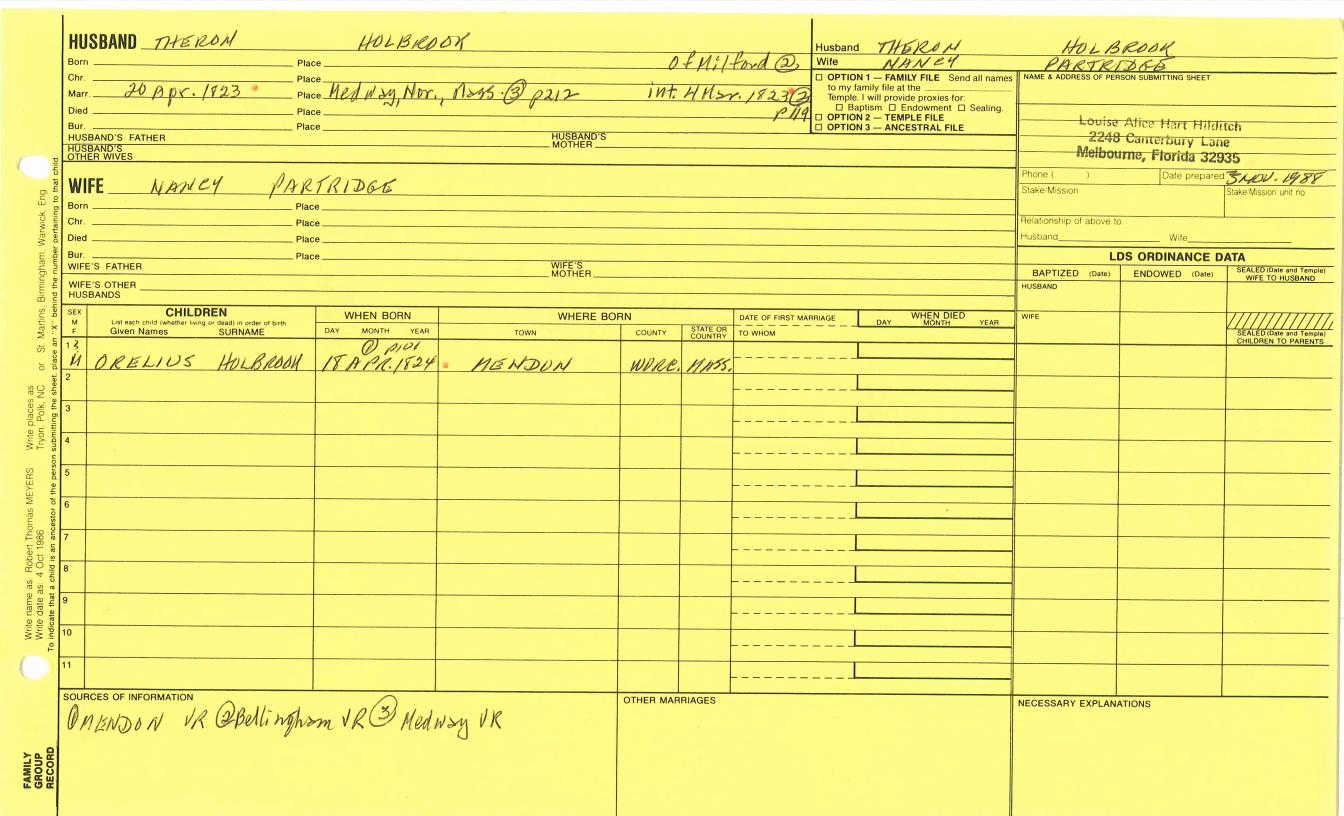 HUSBAND THERON HOLBROOK
Born Place Of Milford ②
Chr. Place
Marr. 20 Apr. 1823 Place Medway, Nor., Mass. ③ p212 int. 4 Mar. 1823 ②
Died Place p 119
Bur. Place
HUSBAND'S FATHER HUSBAND'S MOTHER
HUSBAND'S OTHER WIVES
Husband THERON HOLBROOK
Wife NANCY PARTRIDGE
☐ OPTION 1 — FAMILY FILE Send all names
to my family file at the
Temple. I will provide proxies for:
☐ Baptism ☐ Endowment ☐ Sealing.
☐ OPTION 2 — TEMPLE FILE
☐ OPTION 3 — ANCESTRAL FILE
NAME & ADDRESS OF PERSON SUBMITTING SHEET
Louise Alice Hart Hilditch
2248 Canterbury Lane
Melbourne, Florida 32935
Phone ( ) Date prepared 3 NOV. 1988
Stake/Mission Stake/Mission unit no.
Relationship of above to:
Husband Wife
WIFE NANCY PARTRIDGE
Born Place
Chr. Place
Died Place
Bur. Place
WIFE'S FATHER WIFE'S MOTHER
WIFE'S OTHER HUSBANDS
LDS ORDINANCE DATA
BAPTIZED (Date) ENDOWED (Date) SEALED (Date and Temple) WIFE TO HUSBAND
HUSBAND
WIFE
SEALED (Date and Temple) CHILDREN TO PARENTS
SEX M F
CHILDREN
List each child (whether living or dead) in order of birth
Given Names SURNAME
WHEN BORN
DAY MONTH YEAR
WHERE BORN
TOWN COUNTY STATE OR COUNTRY
DATE OF FIRST MARRIAGE
TO WHOM
WHEN DIED
DAY MONTH YEAR
1 ① p101
M ORELIUS HOLBROOK 18 APR. 1824 MENDON WORC. MASS.
2
3
4
5
6
7
8
9
10
11
SOURCES OF INFORMATION
① MENDON VR ② Bellingham VR ③ Medway VR
OTHER MARRIAGES
NECESSARY EXPLANATIONS
Write name as: Robert Thomas MEYERS Write places as: Tryon, Polk, NC or St. Martins, Birmingham, Warwick, Eng
Write date as: 4 Oct 1986
To indicate that a child is an ancestor of the person submitting the sheet, place an "X" behind the number pertaining to that child.
FAMILY GROUP RECORD